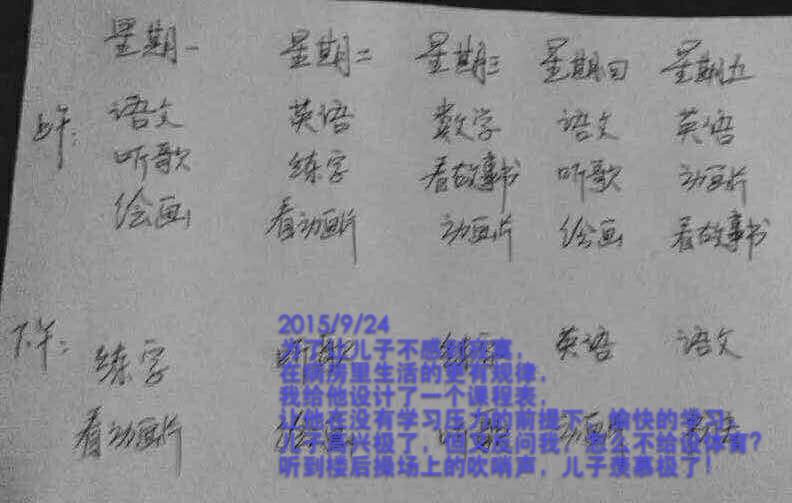 星期一 星期二 星期三 星期四 星期五
上午: 语文 英语 数学 语文 英语
听歌 练字 看故事书 听歌 动画片
绘画 看动画片 动画片 绘画 看故事书
2015/9/24
下午: 练字 听歌 练字 英语 语文
为了让儿子不感到寂寞,
在病房里生活的更有规律,
我给他设计了一个课程表,
看动画片 绘画 听歌 动画片
让他在没有学习压力的前提下,愉快的学习,
儿子高兴极了,但又反问我,怎么不给设体育?
听到楼后操场上的吹哨声,儿子羡慕极了!